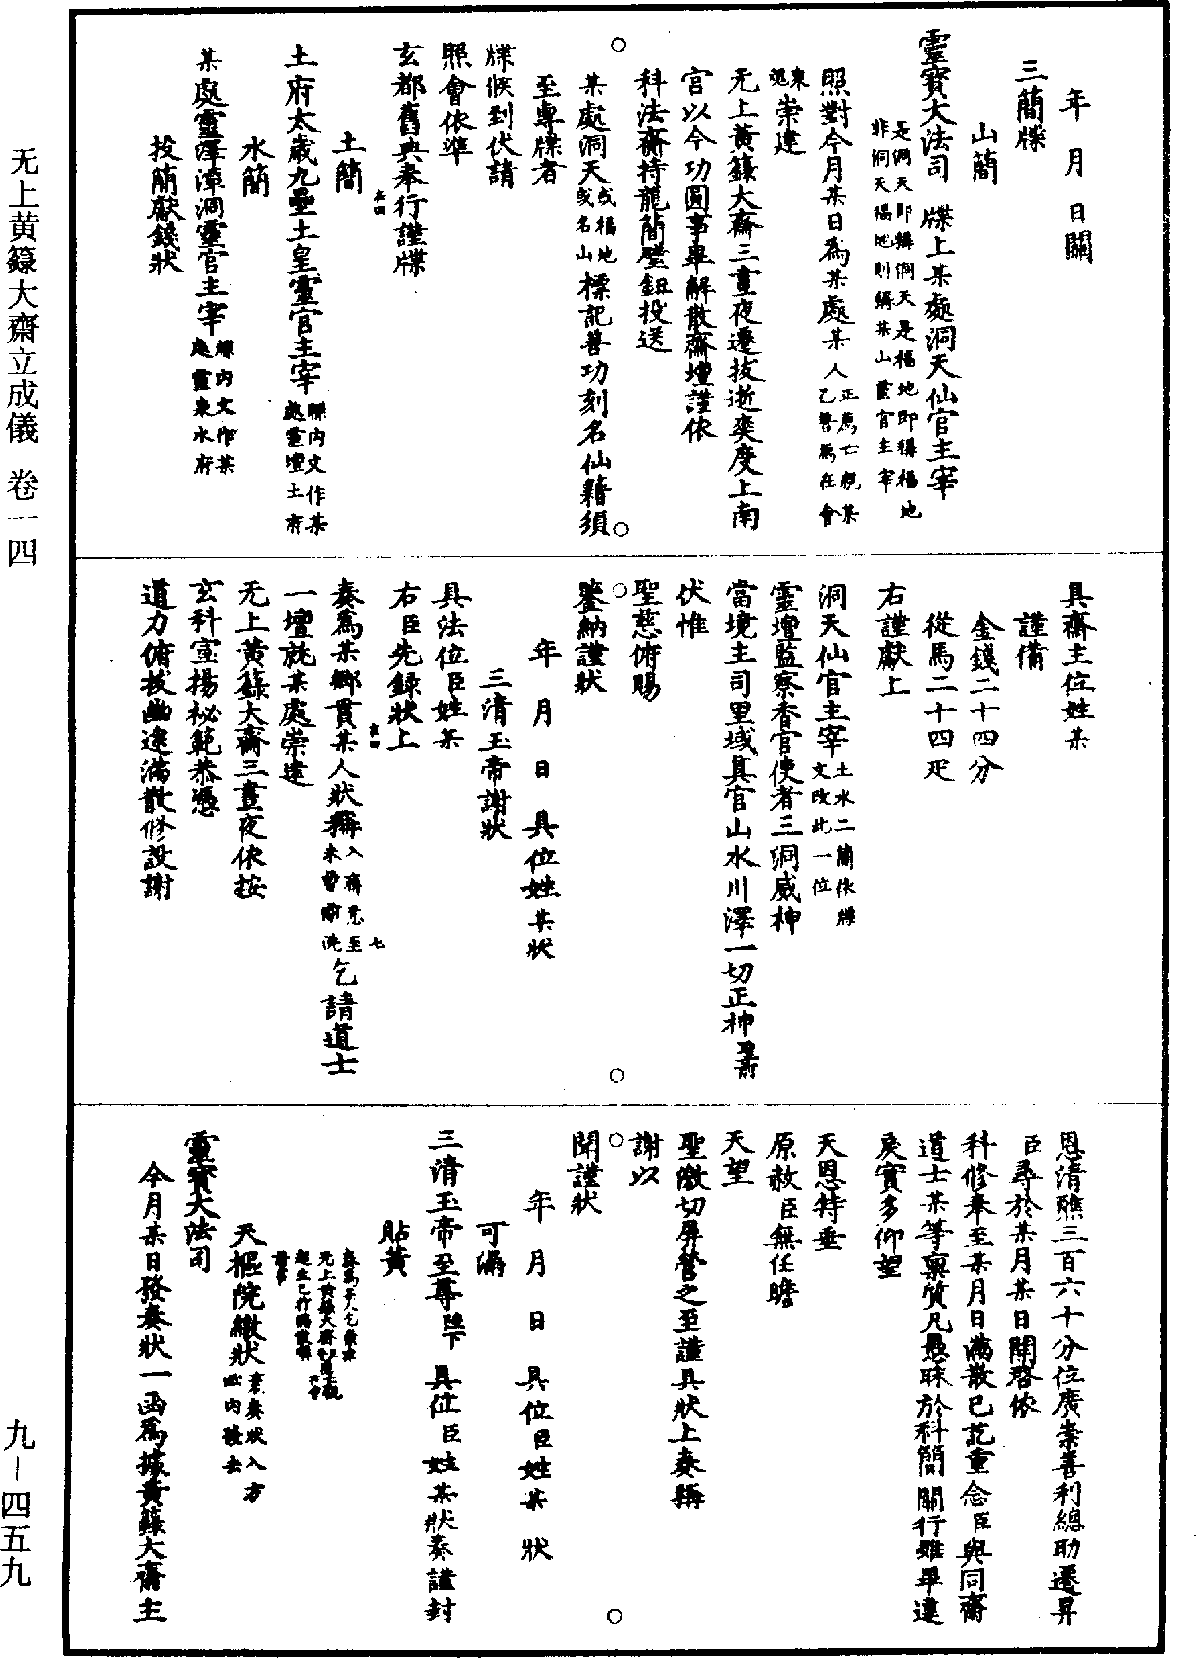 年 月 日關
三簡牒
山簡
靈寶大法司 牒上某處洞天仙官主宰
是洞天即稱洞天是福地即稱福地
非洞天福地則稱某山靈官主宰
照對今月某日為某處某人正薦亡親某乙等薦在會
魂崇建
无上黃籙大齋三晝夜遷拔逝爽度上南
宮以今功圓事畢解散齋壇謹依
科法齋持龍簡璧鈕投送
某處洞天或福地或名山標記善功刻名仙籍須
至專牒者
牒候到伏請
照會依準
玄都舊典奉行謹牒
土簡
土府太歲九壘土皇靈官主宰牒內文作某處靈壇土府
水簡
某處靈澤潭洞靈官主宰牒內文作某處靈泉水府
投簡獻錢狀
具齋主位姓某
謹備
金錢二十四分
從馬二十四疋
右謹獻上
洞天仙官主宰土水二簡依牒文改此一位
靈壇監察香官使者三洞威神
當境主司里域真官山水川澤一切正神
伏惟
聖慈俯賜
鑒納謹狀
年 月 日 具位姓某狀
三清玉帝謝狀
具法位臣姓某
右臣先錄狀上
奏為某鄉貫某人狀稱入齋意至乞請道士
一壇就某處崇建
无上黃籙大齋三晝夜依按
玄科宣揚祕範恭憑
道力俯拔幽途滿散修設謝
恩清醮三百六十分位廣崇善利總助遷昇
臣尋於某月某日開啓依
科修奉至某月日滿散已訖重念臣與同齋
道士某等稟質凡愚昧於科簡關行雖畢違
戾實多仰望
天恩特垂
原赦臣無任瞻
天望
聖激切屏營之至謹具狀上奏稱
謝以
聞謹狀
年 月 日 具位臣姓某 狀
可漏
三清玉帝至尊陛下 具位臣姓某狀奏謹封
貼黃
天樞院繳狀
靈寶大法司
今月某日發奏狀一函為據黃籙大齋主
无上黃籙大齋立成儀 卷一四
九－四五九